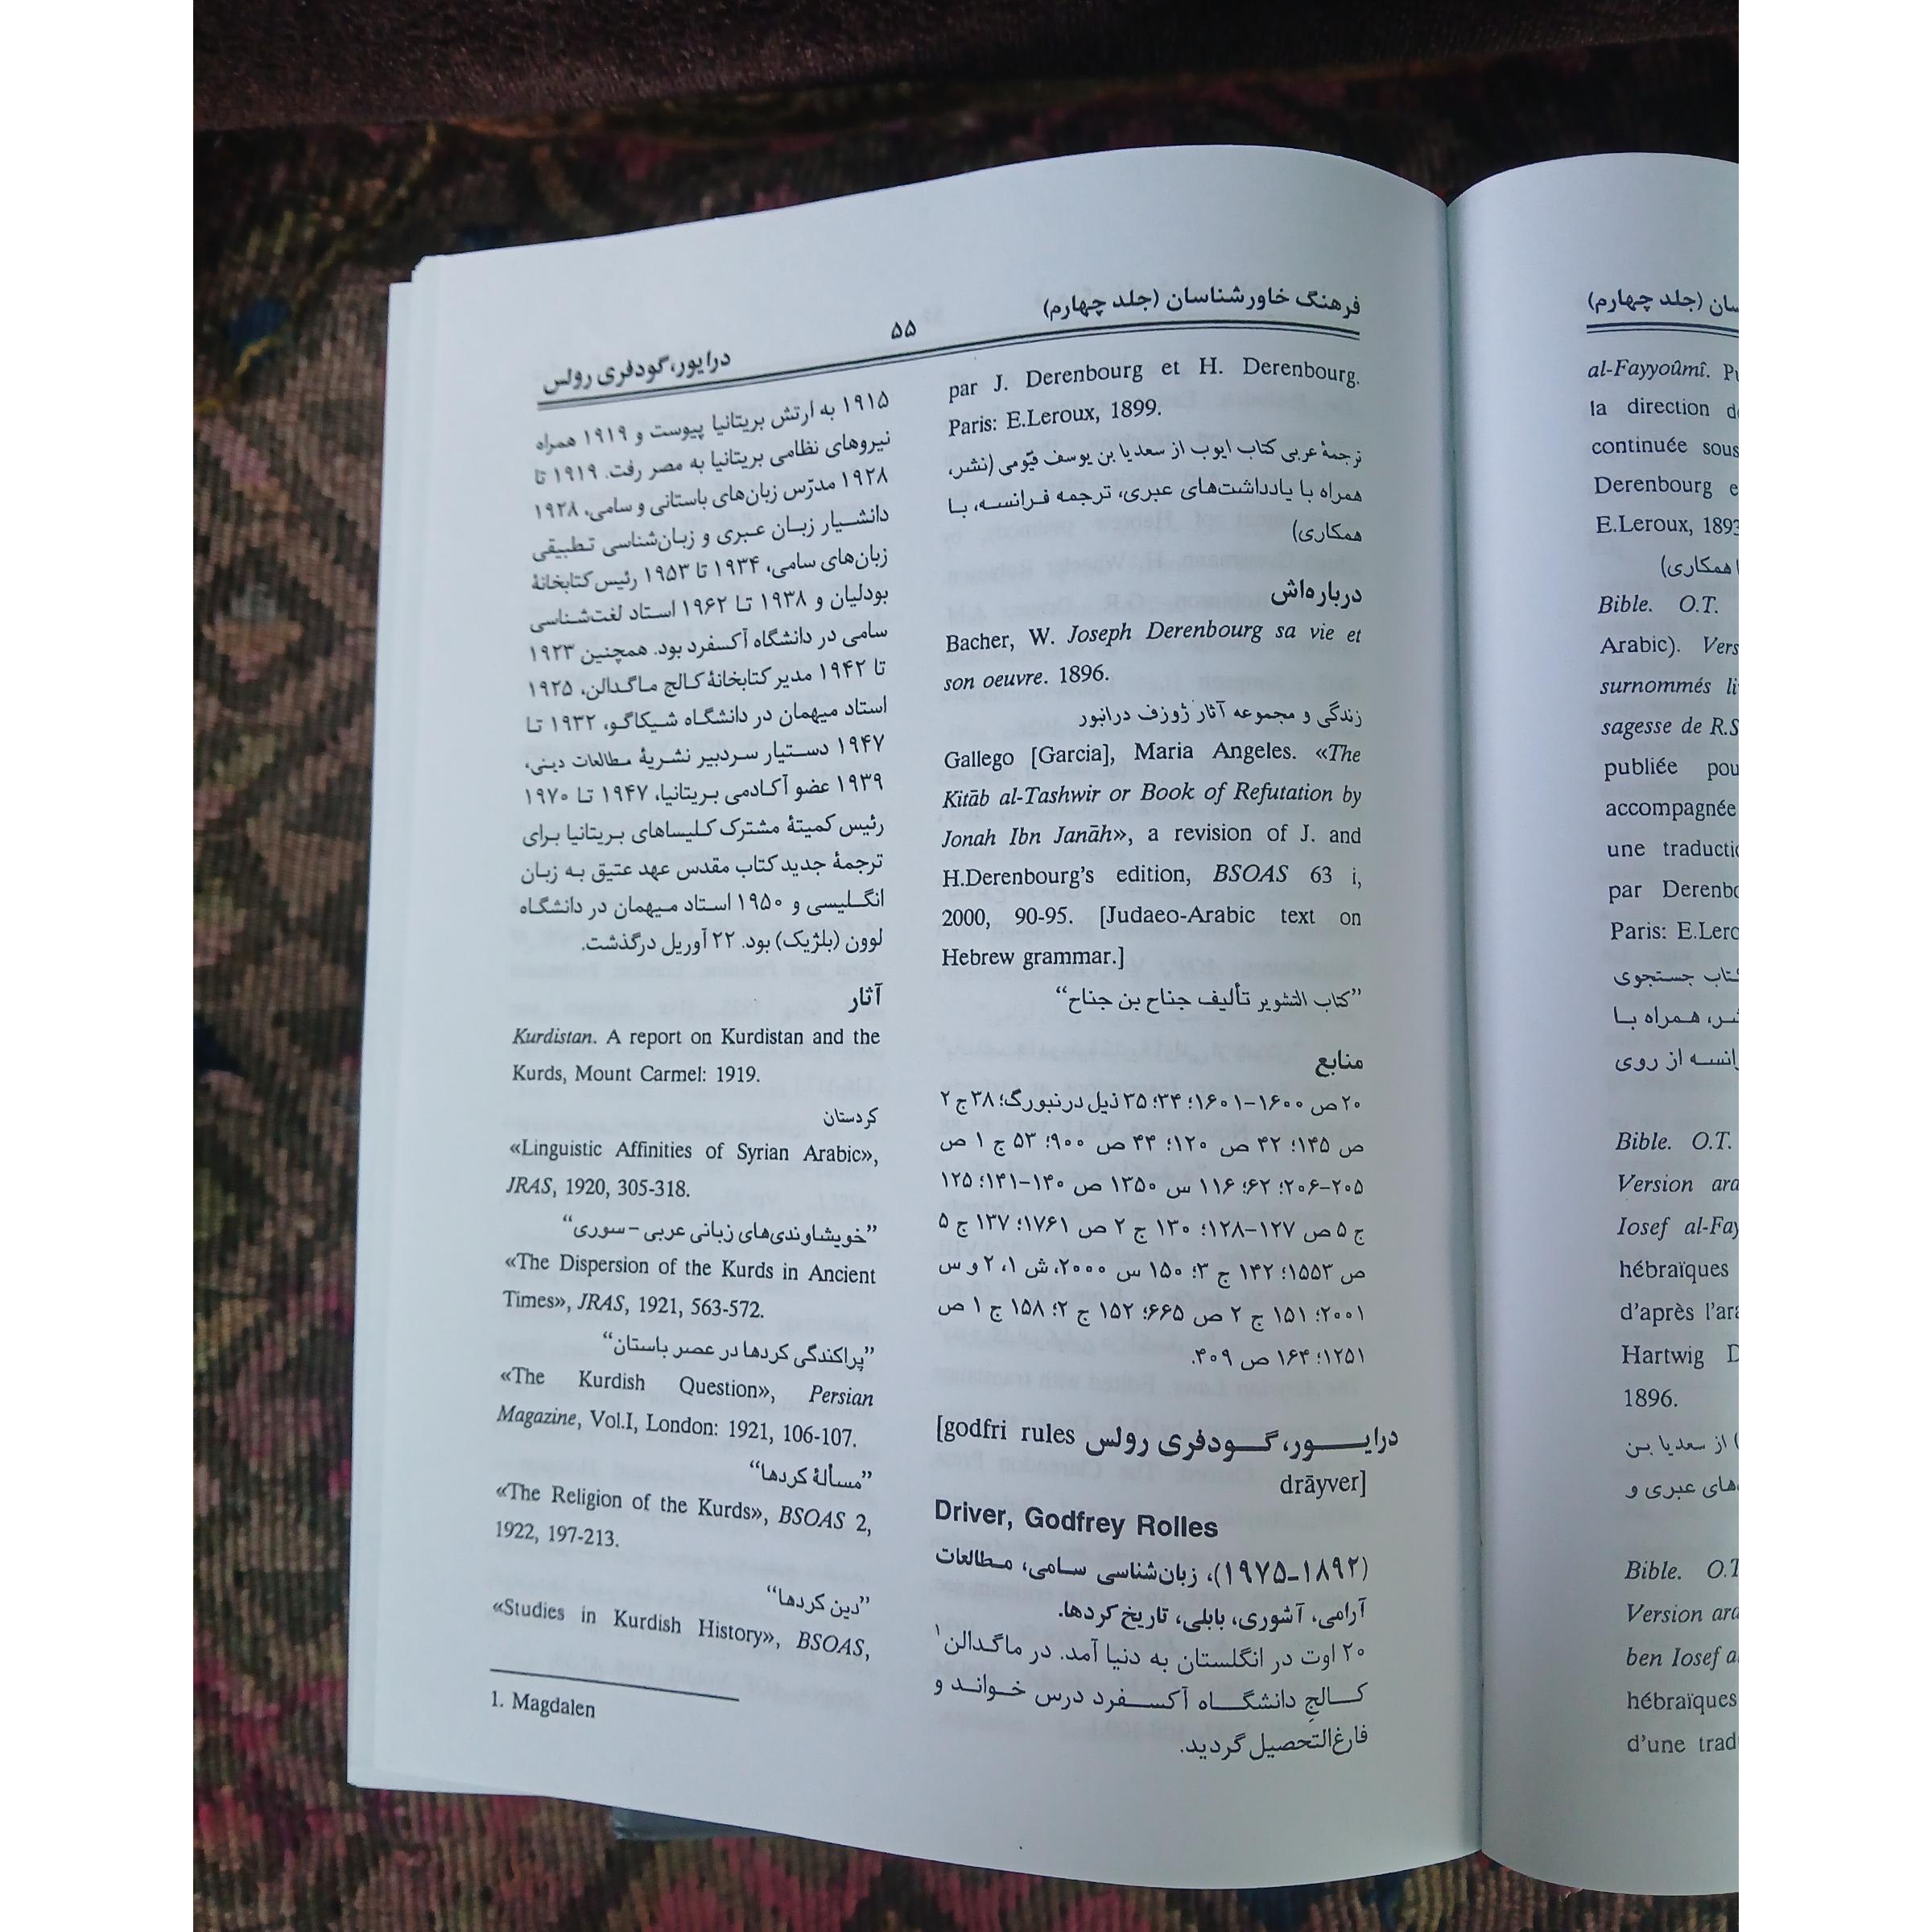 فرهنگ خاورشناسان (جلد چهارم)
۵۵
درایور، گودفری رولس
par J. Derenbourg et H. Derenbourg.
Paris: E.Leroux, 1899.
ترجمهٔ عربی کتاب ایوب از سعدیا بن یوسف فیّومی (نشر،
همراه با یادداشت‌های عبری، ترجمه فرانسه، با
همکاری)
درباره‌اش
Bacher, W. Joseph Derenbourg sa vie et
son oeuvre. 1896.
زندگی و مجموعه آثار ژوزف درانبور
Gallego [Garcia], Maria Angeles. «The
Kitāb al-Tashwir or Book of Refutation by
Jonah Ibn Janāh», a revision of J. and
H.Derenbourg's edition, BSOAS 63 i,
2000, 90-95. [Judaeo-Arabic text on
Hebrew grammar.]
”کتاب التشویر تألیف جناح بن جناح“
منابع
۲۰ ص ۱۶۰۰-۱۶۰۱؛ ۳۴؛ ۳۵ ذیل درنبورگ؛ ۳۸ ج ۲
ص ۱۴۵؛ ۴۲ ص ۱۲۰؛ ۴۴ ص ۹۰۰؛ ۵۳ ج ۱ ص
۲۰۵-۲۰۶؛ ۶۲؛ ۱۱۶ س ۱۳۵۰ ص ۱۴۰-۱۴۱؛ ۱۲۵
ج ۵ ص ۱۲۷-۱۲۸؛ ۱۳۰ ج ۲ ص ۱۷۶۱؛ ۱۳۷ ج ۵
ص ۱۵۵۳؛ ۱۴۲ ج ۳؛ ۱۵۰ س ۲۰۰۰، ش ۱، ۲ و س
۲۰۰۱؛ ۱۵۱ ج ۲ ص ۶۶۵؛ ۱۵۲ ج ۲؛ ۱۵۸ ج ۱ ص
۱۲۵۱؛ ۱۶۴ ص ۴۰۹.
درایور، گودفری رولس [godfri rules
drāyver]
Driver, Godfrey Rolles
(۱۸۹۲-۱۹۷۵)، زبان‌شناسی سامی، مطالعات
آرامی، آشوری، بابلی، تاریخ کردها.
۲۰ اوت در انگلستان به دنیا آمد. در ماگدالن۱
کالجِ دانشگاه آکسفرد درس خواند و
فارغ‌التحصیل گردید.
۱۹۱۵ به ارتش بریتانیا پیوست و ۱۹۱۹ همراه
نیروهای نظامی بریتانیا به مصر رفت. ۱۹۱۹ تا
۱۹۲۸ مدرّس زبان‌های باستانی و سامی، ۱۹۲۸
دانشیار زبان عبری و زبان‌شناسی تطبیقی
زبان‌های سامی، ۱۹۳۴ تا ۱۹۵۳ رئیس کتابخانهٔ
بودلیان و ۱۹۳۸ تا ۱۹۶۲ استاد لغت‌شناسی
سامی در دانشگاه آکسفرد بود. همچنین ۱۹۲۳
تا ۱۹۴۲ مدیر کتابخانهٔ کالج ماگدالن، ۱۹۲۵
استاد میهمان در دانشگاه شیکاگو، ۱۹۳۲ تا
۱۹۴۷ دستیار سردبیر نشریهٔ مطالعات دینی،
۱۹۳۹ عضو آکادمی بریتانیا، ۱۹۴۷ تا ۱۹۷۰
رئیس کمیتهٔ مشترک کلیساهای بریتانیا برای
ترجمهٔ جدید کتاب مقدس عهد عتیق به زبان
انگلیسی و ۱۹۵۰ استاد میهمان در دانشگاه
لوون (بلژیک) بود. ۲۲ آوریل درگذشت.
آثار
Kurdistan. A report on Kurdistan and the
Kurds, Mount Carmel: 1919.
کردستان
«Linguistic Affinities of Syrian Arabic»,
JRAS, 1920, 305-318.
”خویشاوندی‌های زبانی عربی - سوری“
«The Dispersion of the Kurds in Ancient
Times», JRAS, 1921, 563-572.
”پراکندگی کردها در عصر باستان“
«The Kurdish Question», Persian
Magazine, Vol.I, London: 1921, 106-107.
”مسألهٔ کردها“
«The Religion of the Kurds», BSOAS 2,
1922, 197-213.
”دین کردها“
«Studies in Kurdish History», BSOAS,
1. Magdalen
(جلد چهارم)
al-Fayyoûmî.
la direction
continuée sous
Derenbourg
E.Leroux, 1893
همکاری)
Bible. O.T.
Arabic).
surnommés
sagesse de R.S
publiée
accompagnée
une
par
Paris:
کتاب جستجوی
همراه با
از روی
Bible. O.T.
Version
Iosef
hébraïques
d'après
Hartwig
1896.
از سعدیا بن
عبری و
Bible.
Version
ben Iosef
hébraïques
d'une